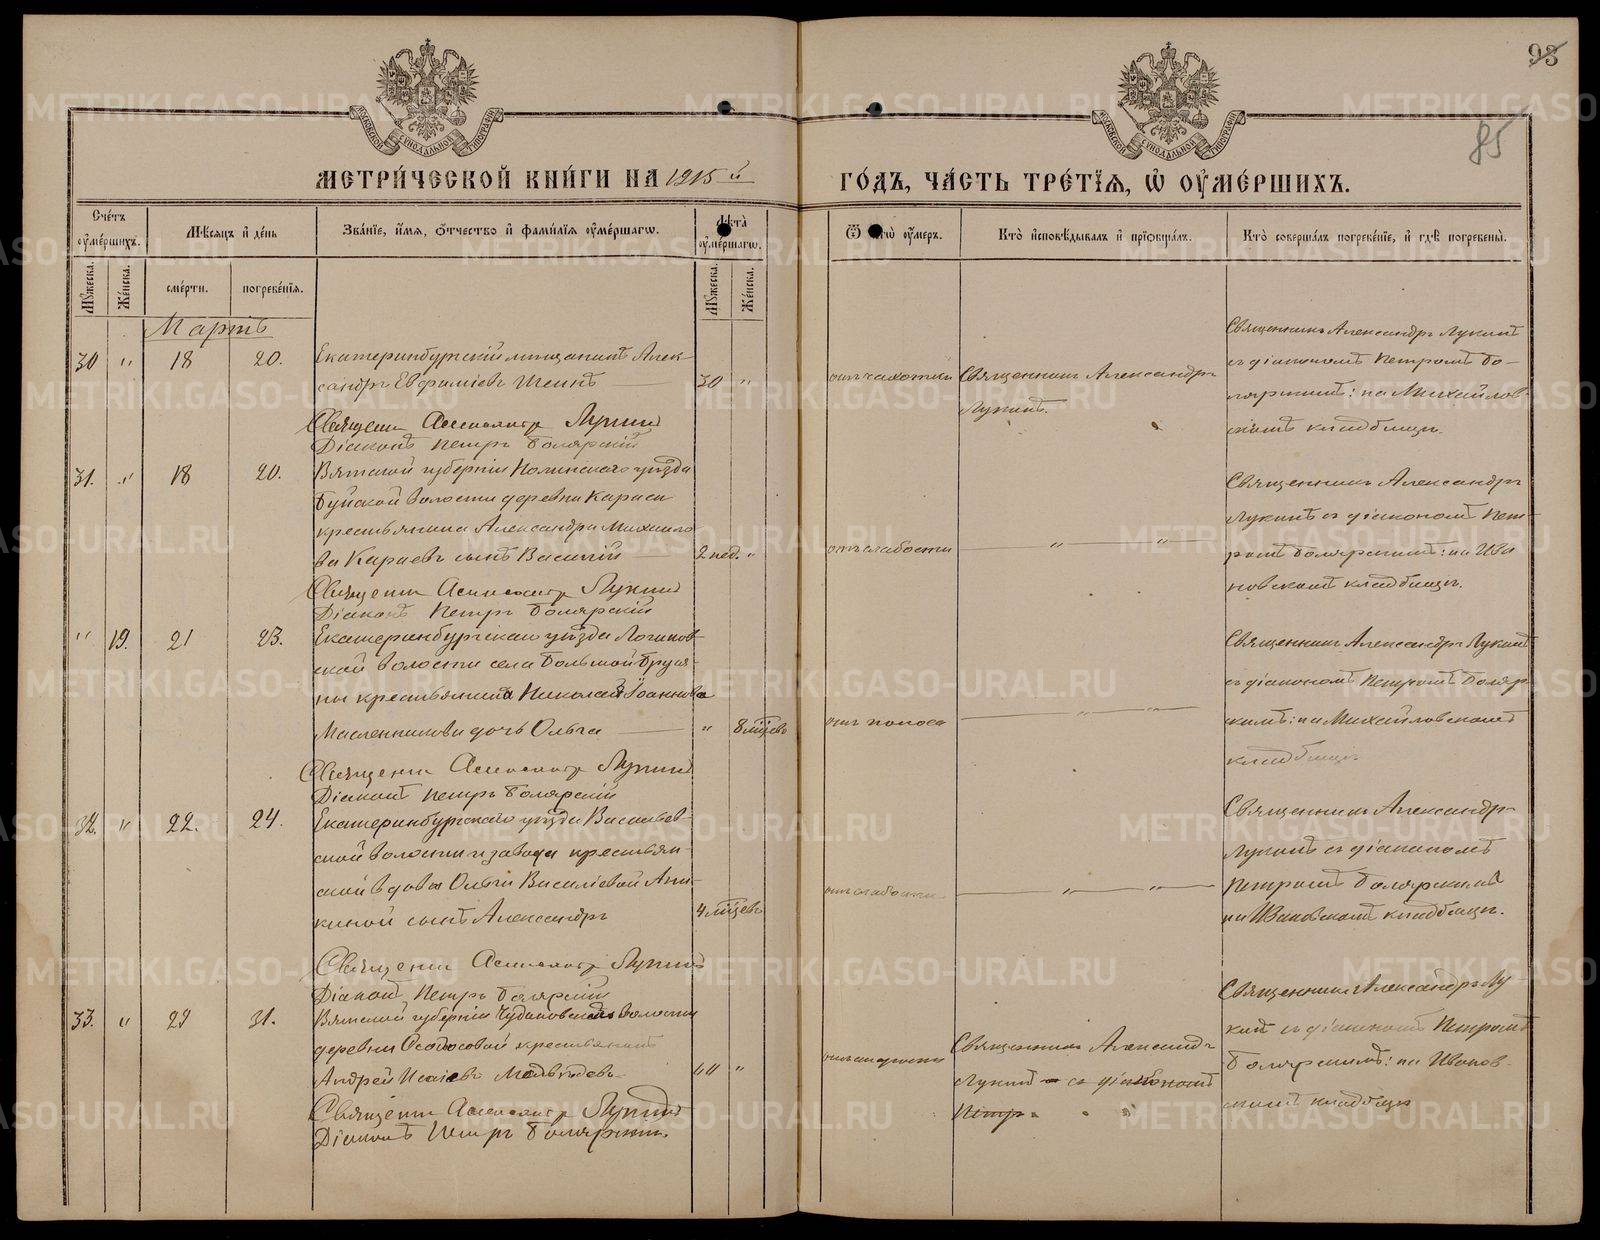 93
85
МЕТРИ́ЧЕСКОЙ КНИ́ГИ НА 1915 й
ГО́ДЪ, ЧА́СТЬ ТРЕ́ТЇѦ, Ѡ҆ ОУ҆МЕ́РШИХЪ.
Сче́тъ оу҆ме́ршихъ.
Мѣ́сяцъ и҆ де́нь
Зва́нїе, и҆́мѧ, ѻ҆́тчество и҆ фами́лїѧ оу҆ме́ршагѡ.
Лѣ́та оу҆ме́ршагѡ.
Ѿ чегѡ̀ оу҆́меръ.
Кто̀ и҆сповѣ́дывалъ и҆ прїѻбща́лъ.
Кто̀ соверша́лъ погребе́нїе, и҆ гдѣ̀ погребены̀.
Мꙋ́жеска.
Же́нска.
сме́рти.
погребе́нїѧ.
Мꙋ́жеска.
Же́нска.
Мартъ
30 " 18 20.
Екатеринбургскій мѣщанинъ Алек-
сандръ Евфиміевъ Шеинъ
30 "
отъ чахотки
Священникъ Александръ
Лукинъ.
Священникъ Александръ Лукинъ
съ діакономъ Петромъ Бо-
лярскимъ: на Михайлов-
скомъ кладбищѣ.
Священ. Александр Лукинъ
Діаконъ Петръ Болярскій
31. " 18 20.
Вятской губерніи Нолинскаго уѣзда
Буйской волости деревни Караси
крестьянина Александра Михайло-
ва Караева сынъ Василій
2 нед. "
отъ слабости
" "
Священникъ Александръ
Лукинъ съ діакономъ Пет-
ромъ Болярскимъ: на Ива
новскомъ кладбищѣ.
Священ. Александр Лукинъ
Діаконъ Петръ Болярскій
" 19. 21 23.
Екатеринбургскаго уѣзда Логинов-
ской волости села Большой Бруся-
ны крестьянина Николая Іоаннова
Масленникова дочь Ольга
" 8 мцевъ
отъ поноса
" "
Священникъ Александръ Лукинъ
съ діакономъ Петромъ Боляр
скимъ: на Михайловскомъ
кладбищѣ.
Священ. Александр Лукинъ
Діаконъ Петръ Болярскій
32. " 22. 24.
Екатеринбургскаго уѣзда Васильев-
ской волости и завода крестьян-
ской вдовы Ольги Василіевой Ани-
киной сынъ Александръ
4 мцевъ
отъ слабости
" "
Священникъ Александръ
Лукинъ съ діакономъ
Петромъ Болярскимъ
на Ивановскомъ кладбищѣ.
Священ. Александр Лукинъ
Діаконъ Петръ Болярскій
33. " 29 31.
Вятской губерніи волости
деревни крестьянинъ
Андрей Исаіевъ Медвѣдевъ
"
Священникъ Александръ
Лукинъ съ діакономъ
Петр
Священникъ Александръ Лу-
кинъ съ діакономъ Петромъ
Болярскимъ: на Иванов-
скомъ кладбищѣ
Священ. Александр Лукинъ
Діаконъ Петръ Болярскій.